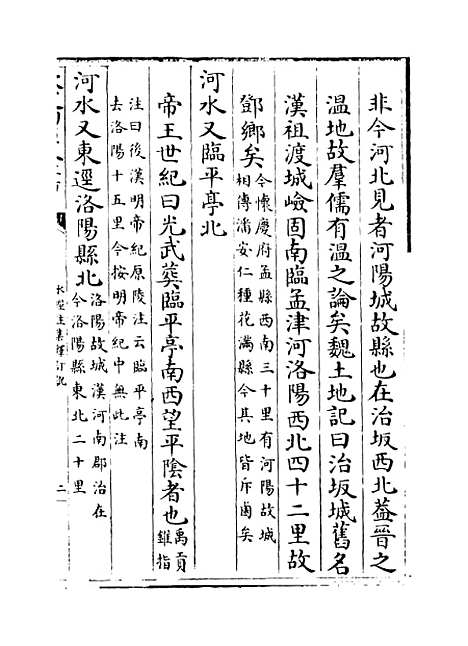 非今河北見者河陽城故縣也在治坂西北葢晉之
温地故羣儒有温之論矣魏土地記曰治坂城舊名
漢祖渡城嶮固南臨孟津河洛陽西北四十二里故
鄧鄉矣今懷慶府孟縣西南三十里有河陽故城
相傳潘安仁種花滿縣今其地皆斥鹵矣
河水又臨平亭北
帝王世紀曰光武葬臨平亭南西望平陰者也禹貢
錐指
注曰後漢明帝紀原陵注云臨平亭南
去洛陽十五里今按明帝紀中無此注
河水又東逕洛陽縣北洛陽故城漢河南郡治在
今洛陽縣東北二十里
水經注集釋訂訛
二